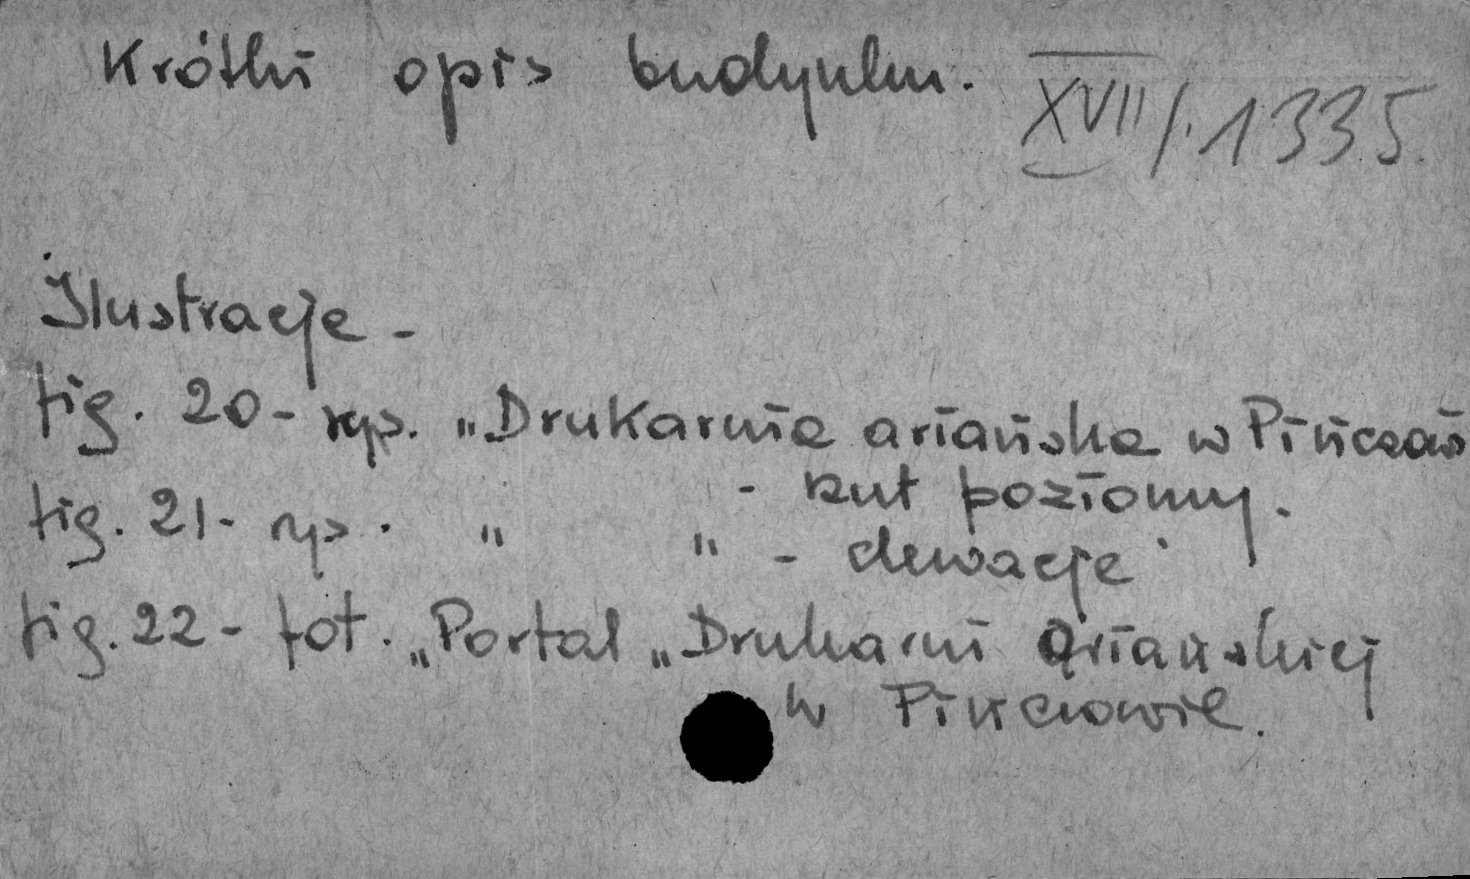 Krótki opis budynku.
XVII/.1335.
Ilustracje -
fig. 20 - rys. „Drukarnia ariańska w Pińczow
- rzut poziomy.
fig. 21 - rys. " " - elewacje
fig. 22 - fot. „Portal „Drukarni Ariańskiej
w Pińczowie.